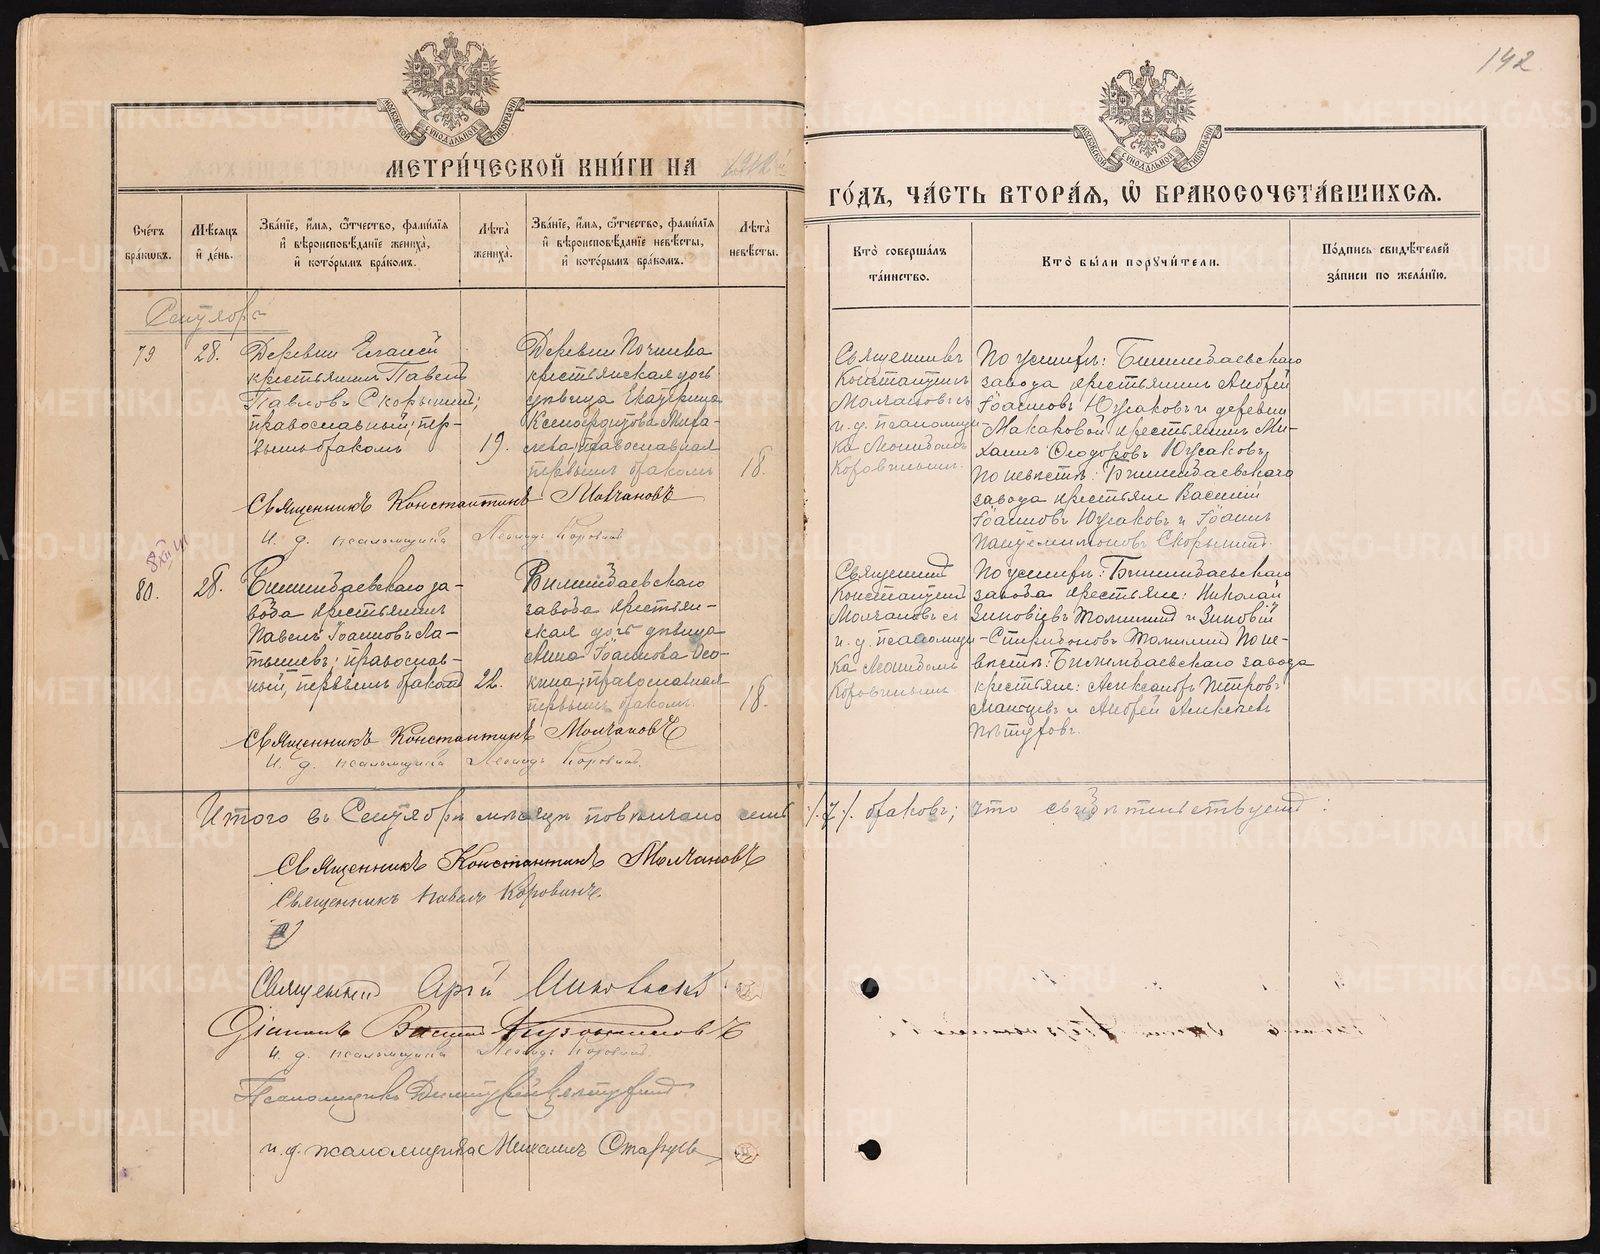 142
МЕТРИ́ЧЕСКОЙ КНИ́ГИ НА
ГО́ДЪ, ЧА́СТЬ ВТОРА́Я, Ѡ҆ БРАКОСОЧЕТА́ВШИХСЯ.
Сче́тъ бра́кѡвъ.
Мѣ́сяцъ и҆ де́нь.
Зва́нїе, и҆́мя, ѻ҆́тчество, фами́лїя и҆ вѣроисповѣ́данїе жениха̀, и҆ кото́рымъ бра́комъ.
Лѣ́та жениха̀.
Зва́нїе, и҆́мя, ѻ҆́тчество, фами́лїя и҆ вѣроисповѣ́данїе невѣ́сты, и҆ кото́рымъ бра́комъ.
Лѣ́та невѣ́сты.
Кто̀ соверша́лъ та́инство.
Кто̀ бы́ли порꙋчи́тели.
По́дпись свидѣ́телей за́писи по жела́нїю.
Сентябрь
79
28.
Деревни
крестьянинъ Павелъ
Павловъ Скорынинъ;
православный; пер-
вымъ бракомъ
19.
Деревни Починка
крестьянская дочь
дѣвица Екатерина
православная
первымъ бракомъ
18.
Священникъ
Константинъ
Молчановъ съ
и. д. псаломщи-
ка Леонидомъ
Коровинымъ.
По женихѣ: Билимбаевскаго
завода крестьянинъ Андрей
Іоанновъ Юсаковъ и деревни
Макаровой крестьянинъ Ми-
хаилъ Ѳеодоровъ Юсаковъ,
По невѣстѣ: Билимбаевскаго
завода крестьяне Василій
Іоанновъ Юсаковъ и Іоаннъ
Пантелеимоновъ Скорынинъ.
Священникъ Константинъ Молчановъ
И. д. псаломщика Леонидъ Коровинъ
8 XII 41
80.
28.
Билимбаевскаго за-
вода крестьянинъ
Павелъ Іоанновъ Ла-
тышевъ; православ-
ный, первымъ бракомъ
22.
Билимбаевскаго
завода крестьян-
ская дочь дѣвица
Анна Іоаннова Осо-
кина; православная
первымъ бракомъ.
18.
Священникъ
Константинъ
Молчановъ съ
и. д. псаломщи-
ка Леонидомъ
Коровинымъ.
По женихѣ: Билимбаевскаго
завода крестьяне: Николай
Зиновіевъ Томилинъ и Зиновій
Спиридоновъ Томилинъ По не-
вѣстѣ: Билимбаевскаго завода
крестьяне: Александръ Петровъ
и Андрей Алексѣевъ
Пѣтуховъ.
Священникъ Константинъ Молчановъ
И. д. псаломщика Леонидъ Коровинъ.
Итого въ Сентябрѣ мѣсяцѣ повѣнчано семь ./.7./. браковъ; что свидѣтельствуемъ:
Священникъ Константинъ Молчановъ
Священникъ Павелъ Коровинъ.
Священникъ
Діаконъ
И. д. псаломщика Леонидъ Коровинъ.
Псаломщикъ Димитрій
и. д. псаломщика
METRIKI.GASO-URAL.RU